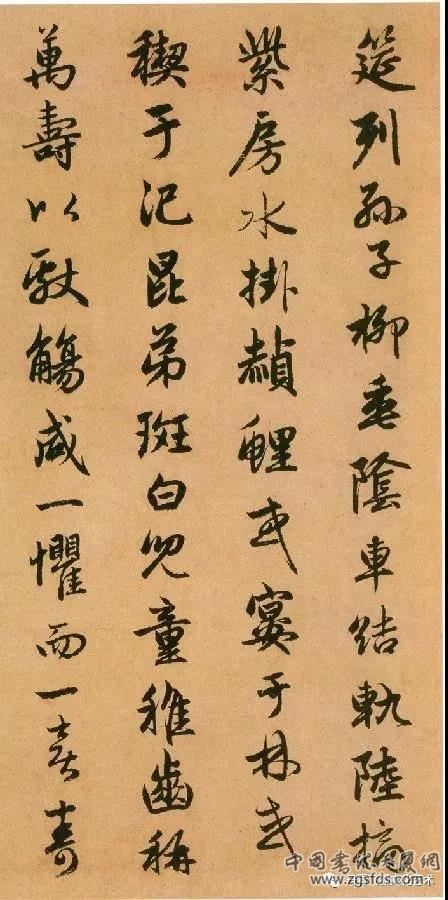 筵列孫子柳垂陰車結軌陸摘
紫房水掛赬鯉或宴于林或
禊于汜昆弟斑白兒童稚齒稱
萬壽以獻觴咸一懼而一喜壽
中国书法发展网
www.zgsfds.com